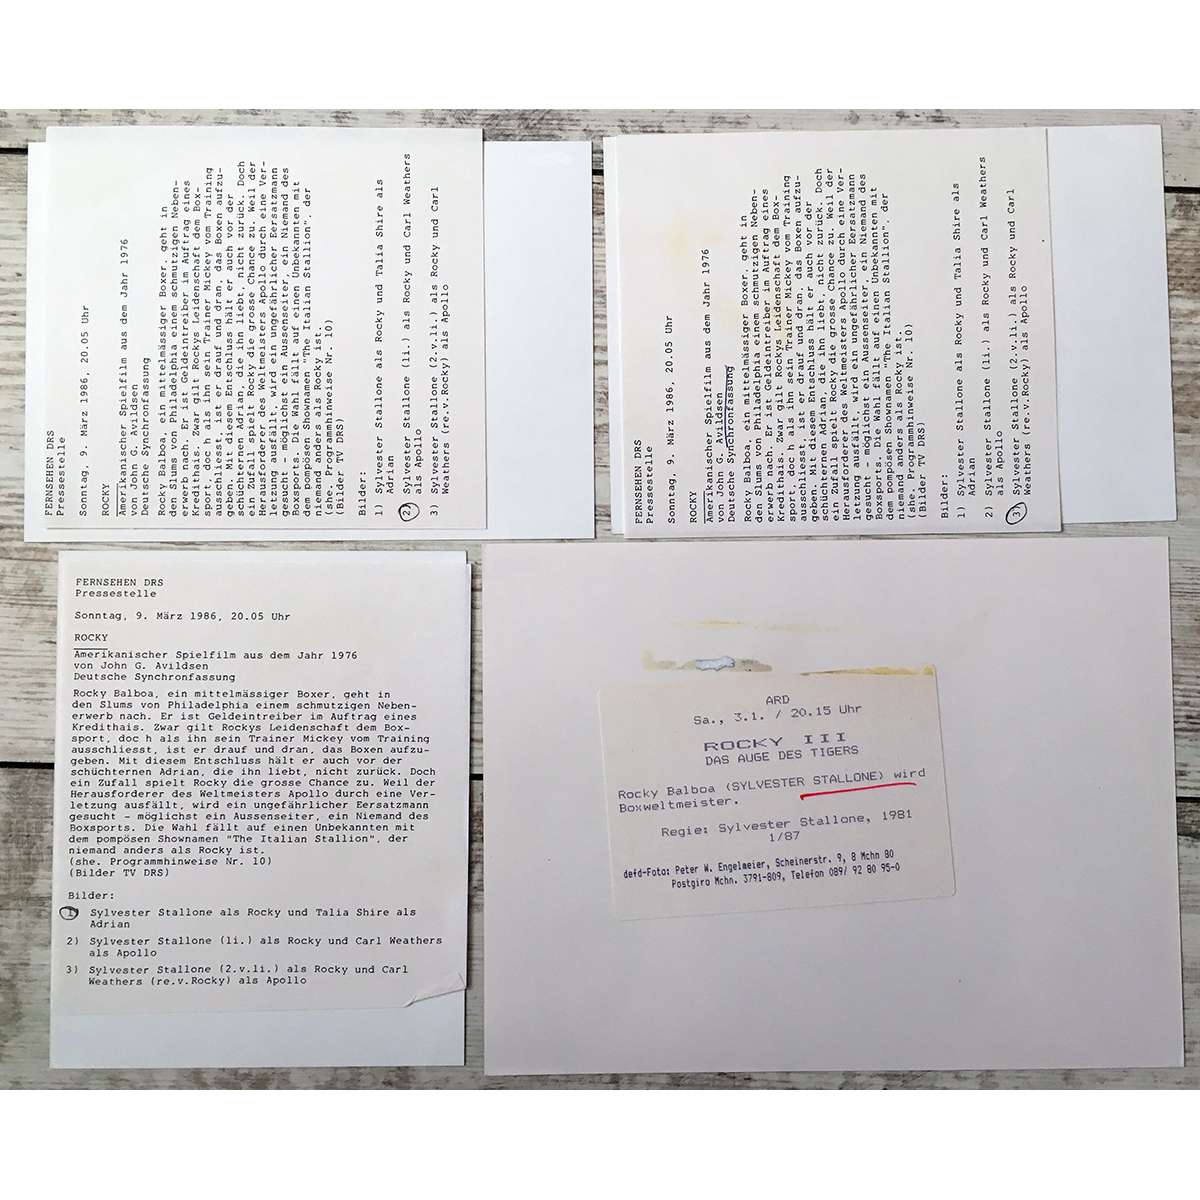 FERNSEHEN DRS
Pressestelle
Sonntag, 9. März 1986, 20.05 Uhr
ROCKY
Amerikanischer Spielfilm aus dem Jahr 1976
von John G. Avildsen
Deutsche Synchronfassung
Rocky Balboa, ein mittelmässiger Boxer, geht in
den Slums von Philadelphia einem schmutzigen Neben-
erwerb nach. Er ist Geldeintreiber im Auftrag eines
Kredithais. Zwar gilt Rockys Leidenschaft dem Box-
sport, doc h als ihn sein Trainer Mickey vom Training
ausschliesst, ist er drauf und dran, das Boxen aufzu-
geben. Mit diesem Entschluss hält er auch vor der
schüchternen Adrian, die ihn liebt, nicht zurück. Doch
ein Zufall spielt Rocky die grosse Chance zu. Weil der
Herausforderer des Weltmeisters Apollo durch eine Ver-
letzung ausfällt, wird ein ungefährlicher Eersatzmann
gesucht - möglichst ein Aussenseiter, ein Niemand des
Boxsports. Die Wahl fällt auf einen Unbekannten mit
dem pompösen Shownamen "The Italian Stallion", der
niemand anders als Rocky ist.
(she. Programmhinweise Nr. 10)
(Bilder TV DRS)
Bilder:
1) Sylvester Stallone als Rocky und Talia Shire als
Adrian
2) Sylvester Stallone (li.) als Rocky und Carl Weathers
als Apollo
3) Sylvester Stallone (2.v.li.) als Rocky und Carl
Weathers (re.v.Rocky) als Apollo
FERNSEHEN DRS
Pressestelle
Sonntag, 9. März 1986, 20.05 Uhr
ROCKY
Amerikanischer Spielfilm aus dem Jahr 1976
von John G. Avildsen
Deutsche Synchronfassung
Rocky Balboa, ein mittelmässiger Boxer, geht in
den Slums von Philadelphia einem schmutzigen Neben-
erwerb nach. Er ist Geldeintreiber im Auftrag eines
Kredithais. Zwar gilt Rockys Leidenschaft dem Box-
sport, doc h als ihn sein Trainer Mickey vom Training
ausschliesst, ist er drauf und dran, das Boxen aufzu-
geben. Mit diesem Entschluss hält er auch vor der
schüchternen Adrian, die ihn liebt, nicht zurück. Doch
ein Zufall spielt Rocky die grosse Chance zu. Weil der
Herausforderer des Weltmeisters Apollo durch eine Ver-
letzung ausfällt, wird ein ungefährlicher Eersatzmann
gesucht - möglichst ein Aussenseiter, ein Niemand des
Boxsports. Die Wahl fällt auf einen Unbekannten mit
dem pompösen Shownamen "The Italian Stallion", der
niemand anders als Rocky ist.
(she. Programmhinweise Nr. 10)
(Bilder TV DRS)
Bilder:
1) Sylvester Stallone als Rocky und Talia Shire als
Adrian
2) Sylvester Stallone (li.) als Rocky und Carl Weathers
als Apollo
3) Sylvester Stallone (2.v.li.) als Rocky und Carl
Weathers (re.v.Rocky) als Apollo
FERNSEHEN DRS
Pressestelle
Sonntag, 9. März 1986, 20.05 Uhr
ROCKY
Amerikanischer Spielfilm aus dem Jahr 1976
von John G. Avildsen
Deutsche Synchronfassung
Rocky Balboa, ein mittelmässiger Boxer, geht in
den Slums von Philadelphia einem schmutzigen Neben-
erwerb nach. Er ist Geldeintreiber im Auftrag eines
Kredithais. Zwar gilt Rockys Leidenschaft dem Box-
sport, doc h als ihn sein Trainer Mickey vom Training
ausschliesst, ist er drauf und dran, das Boxen aufzu-
geben. Mit diesem Entschluss hält er auch vor der
schüchternen Adrian, die ihn liebt, nicht zurück. Doch
ein Zufall spielt Rocky die grosse Chance zu. Weil der
Herausforderer des Weltmeisters Apollo durch eine Ver-
letzung ausfällt, wird ein ungefährlicher Eersatzmann
gesucht - möglichst ein Aussenseiter, ein Niemand des
Boxsports. Die Wahl fällt auf einen Unbekannten mit
dem pompösen Shownamen "The Italian Stallion", der
niemand anders als Rocky ist.
(she. Programmhinweise Nr. 10)
(Bilder TV DRS)
Bilder:
1) Sylvester Stallone als Rocky und Talia Shire als
Adrian
2) Sylvester Stallone (li.) als Rocky und Carl Weathers
als Apollo
3) Sylvester Stallone (2.v.li.) als Rocky und Carl
Weathers (re.v.Rocky) als Apollo
ARD
Sa., 3.1. / 20.15 Uhr
ROCKY III
DAS AUGE DES TIGERS
Rocky Balboa (SYLVESTER STALLONE) wird
Boxweltmeister.
Regie: Sylvester Stallone, 1981
1/87
defd-Foto: Peter W. Engelmeier, Scheinerstr. 9, 8 Mchn 80
Postgiro Mchn. 3791-809, Telefon 089/ 92 80 95-0